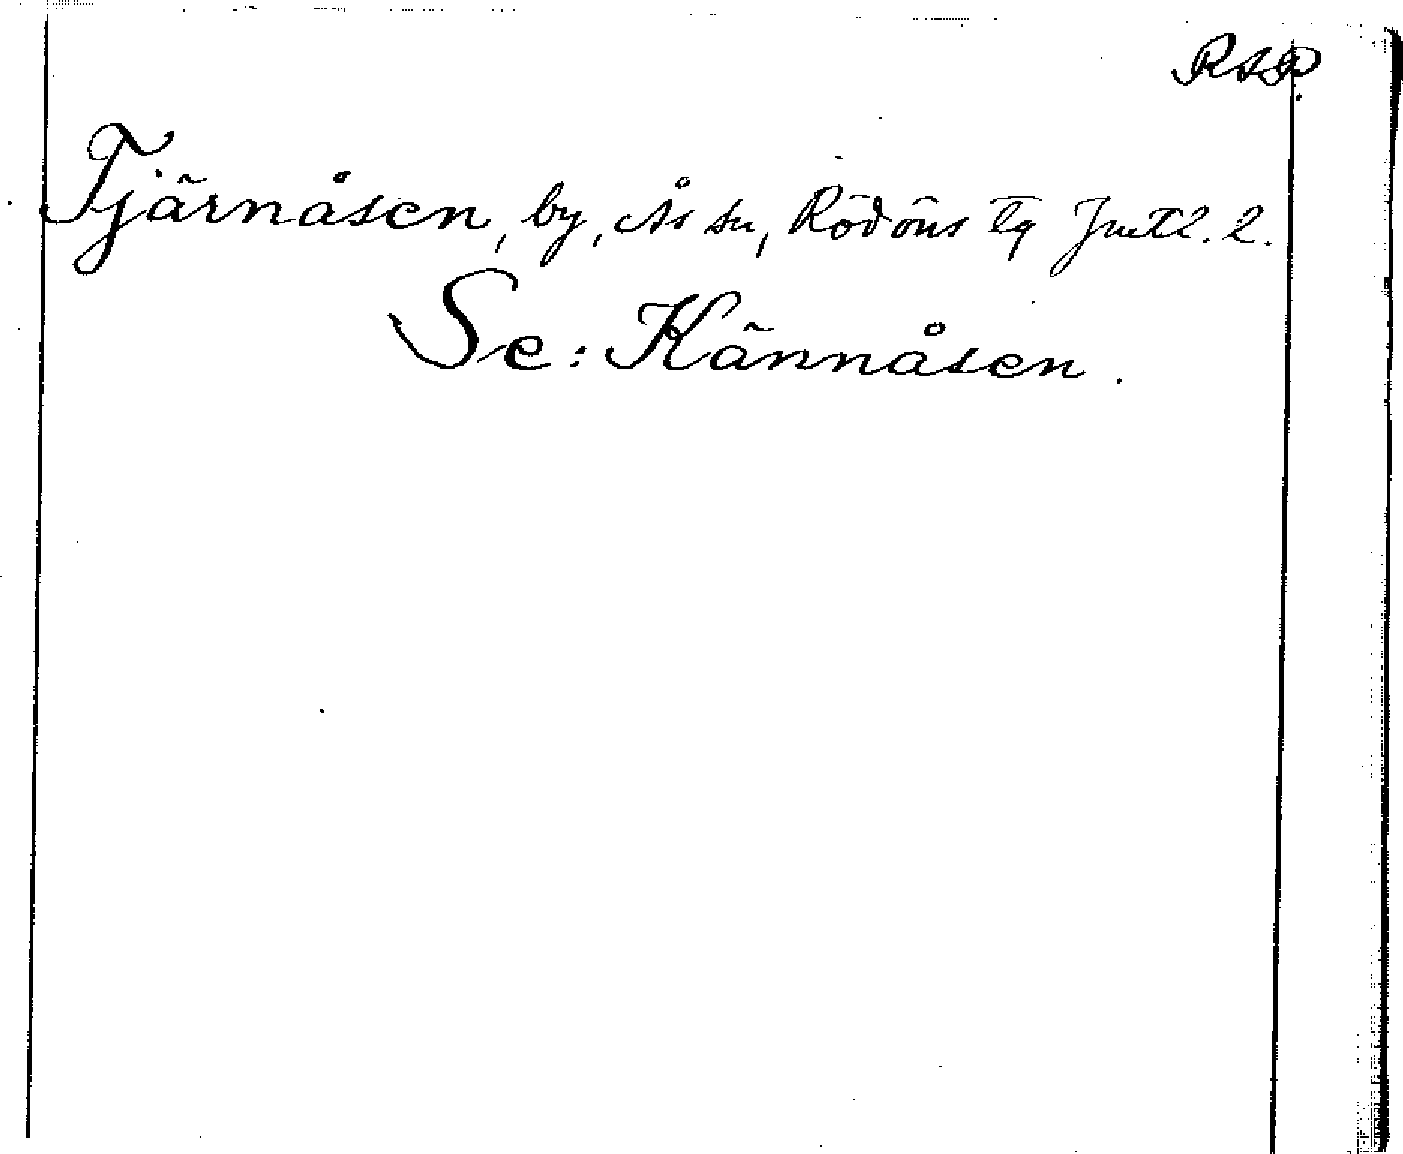 RAÄ
Tjärnåsen, by, Ås sn, Rödöns tg Jmtl. l.
Se: Kännåsen.